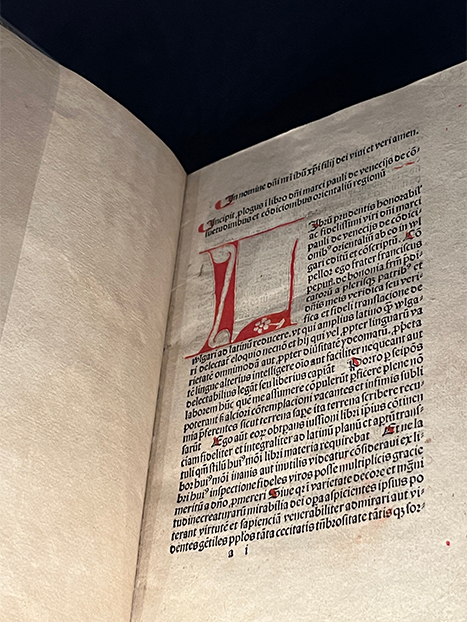 In nomine dñi nri ihũ xpi filij dei viui et veri amen.
Incipit plogus i libro dñi marci pauli de venecijs de cõ
suetudinibus et cõdicionibus orientaliũ regionũ
Librũ prudentis honorabil
ac fidelissimi viri dñi marci
pauli de venecijs de cõdici
onibꝰ orientaliũ ab eo in wl
gari editũ et cõscriptũ. Cõ
pellor ego frater franciscus
pepuri. de bononia frm̃ pdi
catorũ a plerisqꝫ patribꝰ et
dñis meis veridica seu veri
fica et fideli translacione de
wlgari ad latinũ reducere. vt qui ampliꝰ latino qꝫ wlga
ri delectãt eloquio necnõ et hij qui vel ppter linguarũ va
rietatẽ omnimodã aut ppter diũsitatẽ ydeomatũ. ppheta
tẽ lingue alterius intelligere oĩo aut faciliter nequeunt aut
delectabilius legãt seu liberius capiãt Porro p seipõs
laborem hũc que me assumere cõpulerũt pficere plene nõ
poterant sꝫ alciori cõtemplacioni vacantes et infimis subli
mia pferentes sicut terrena sape ita terrena scribere recu
sarũt Ego aũt eorꝫ obtpans iussioni libri ipius cõtinen
ciam fideliter et integraliter ad latinũ planũ et aptũ trans
tuli qm̃ stilũ huiꝰmõi libri materia requirebat Et ne la
bor huiꝰmõi inanis aut inutilis videatur cõsideraui ex li
bri huiꝰ inspectione fideles viros posse multiplicis gracie
meritũ a dño pmereri Siue qꝫ ĩ varietate decore et mãgni
tudine creaturarũ mirabilia dei opa aspicientes ipsius po
terant virtutẽ et sapienciã venerabiliter admirari aut vi
dentes gẽtiles pplos tãta cecitatis tñbrositate tãtis qꝫ sor-
a i